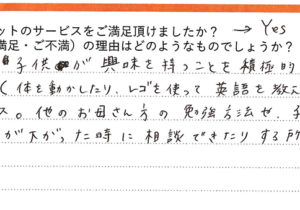 ットのサービスをご満足頂けましたか? → Yes
満足・ご不満)の理由はどのようなものでしょうか?
子供が興味を持つことを積極的
く体を動かしたり、レゴを使って英語を教え
ス。他のお母さん方の勉強方法や、子
が下がった時に相談できたりする所